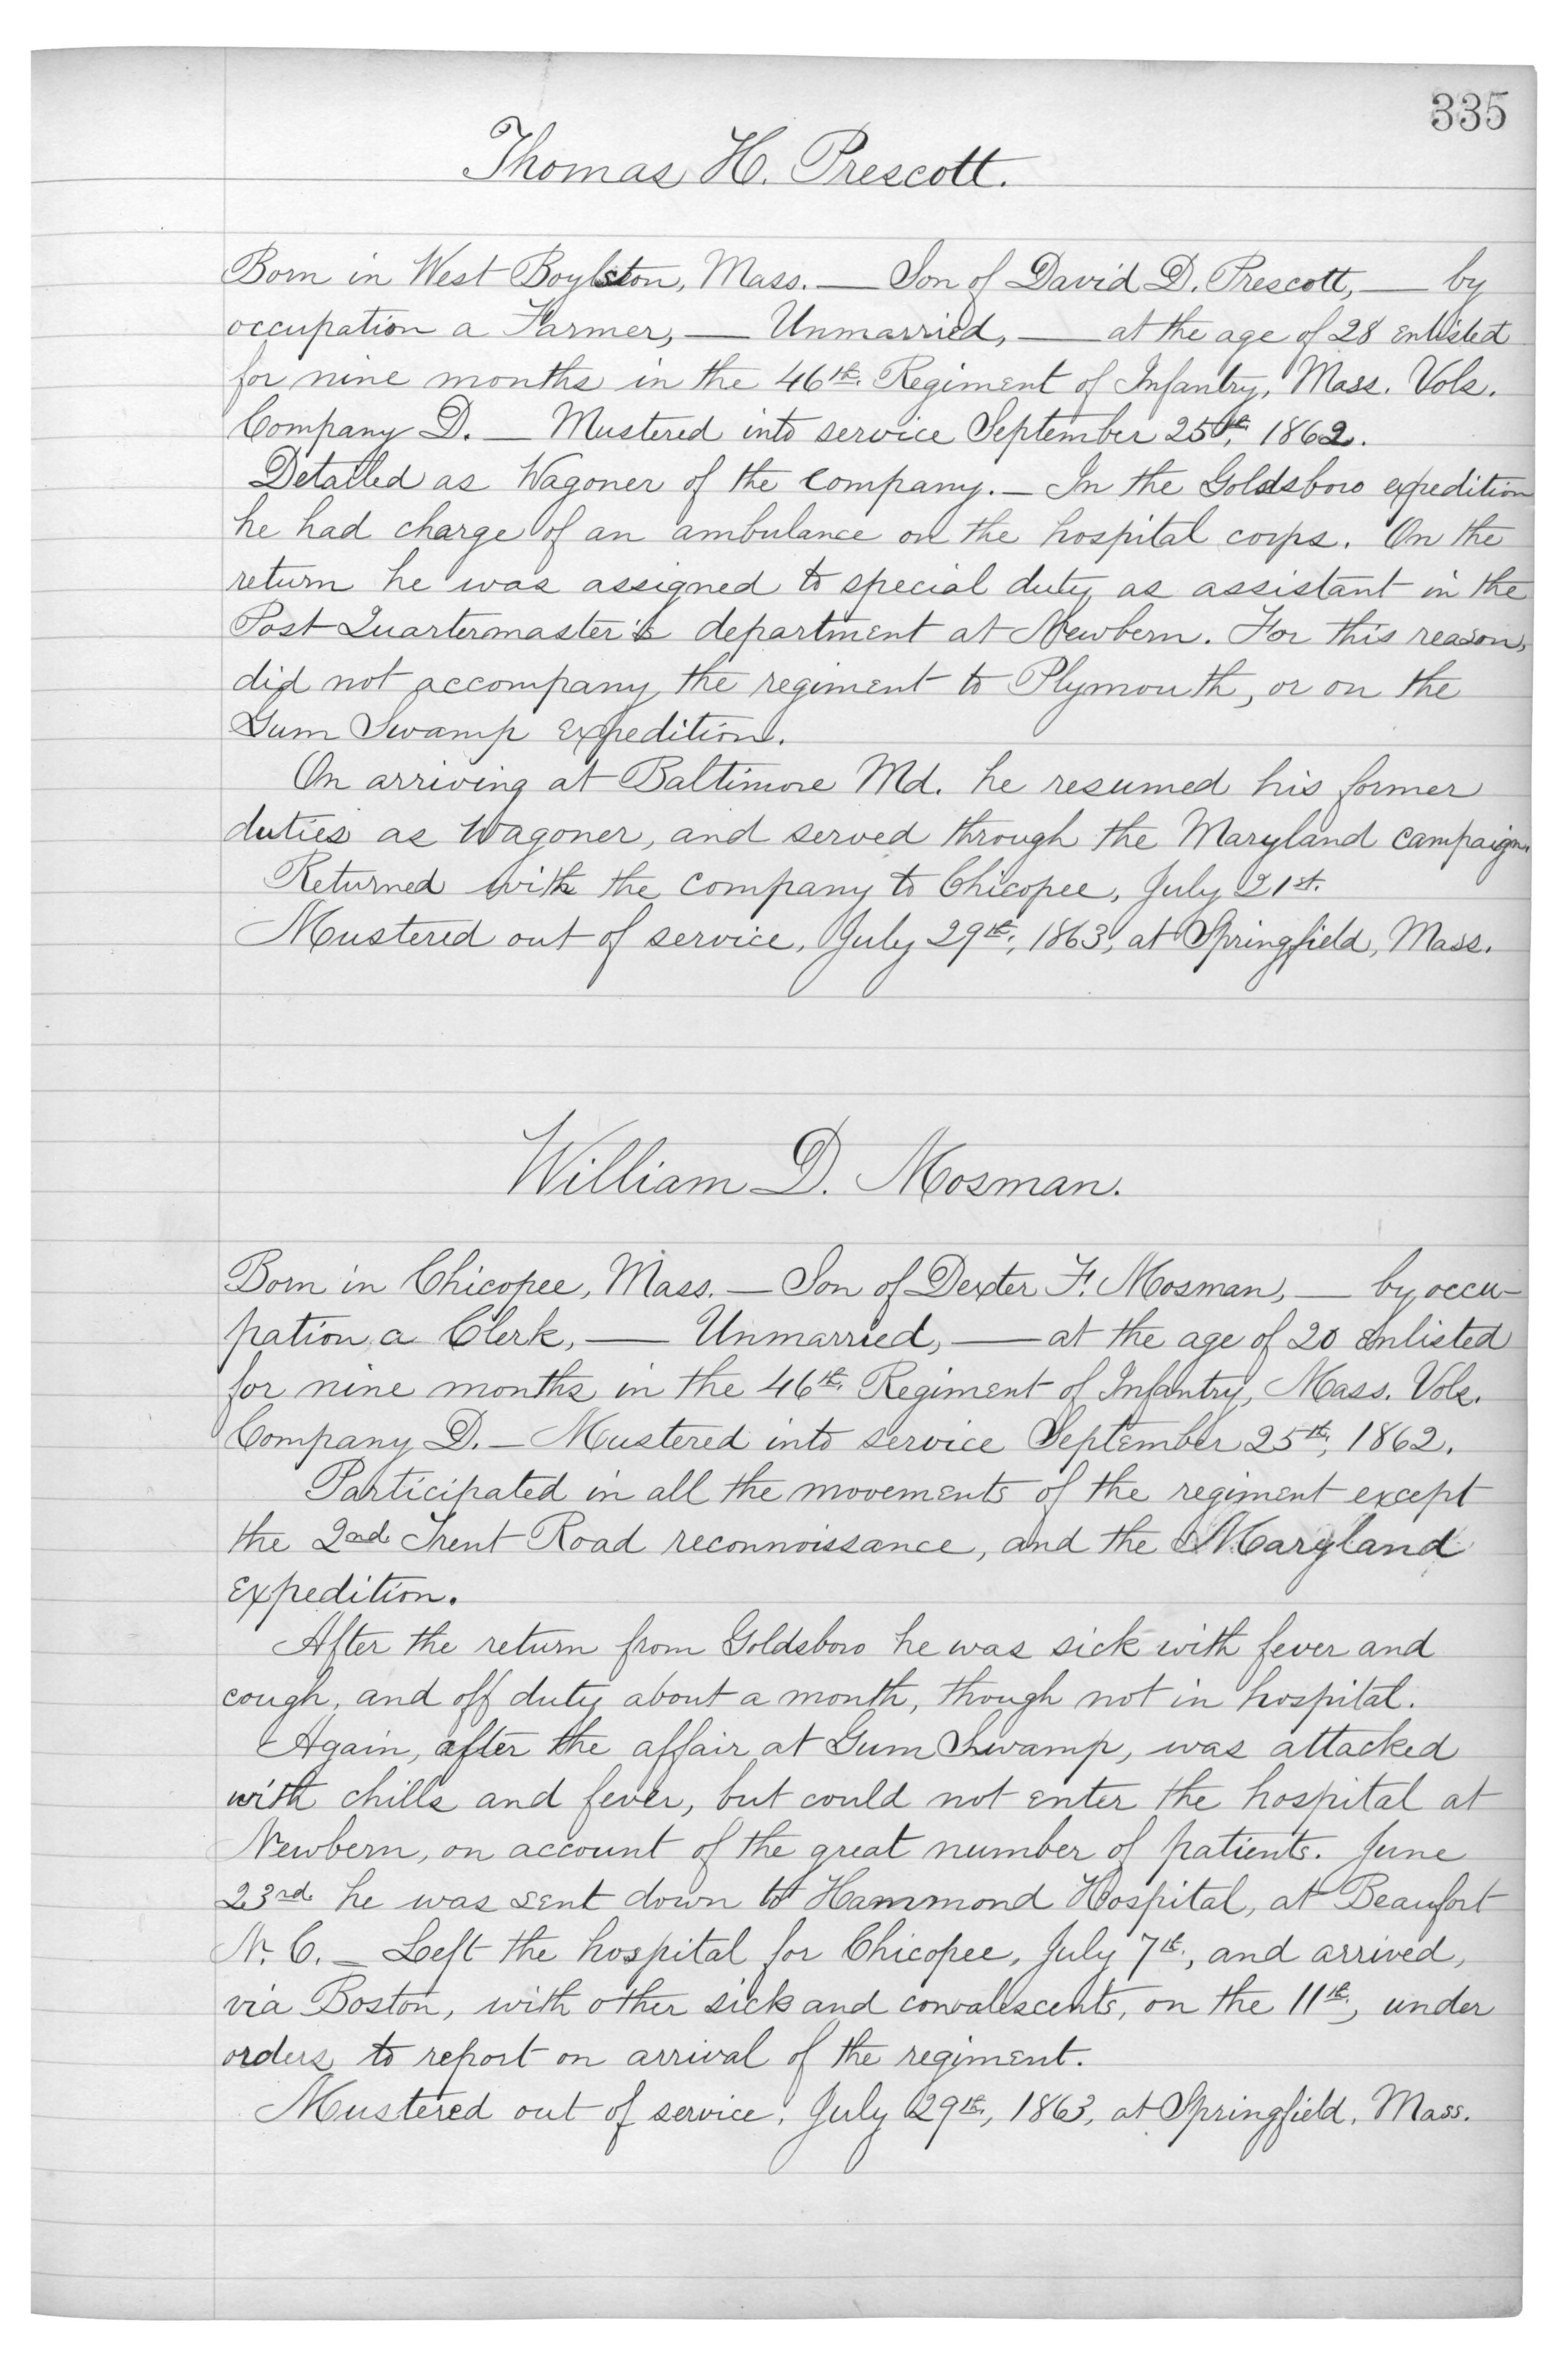 335
Thomas H. Prescott.
Born in West Boylston, Mass. — Son of David D. Prescott, — by
occupation a Farmer, — Unmarried, — at the age of 28 enlisted
for nine months in the 46th. Regiment of Infantry, Mass. Vols.
Company D. — Mustered into service September 25th, 1862.
Detailed as Wagoner of the Company. — In the Goldsboro expedition
he had charge of an ambulance on the hospital corps. On the
return he was assigned to special duty as assistant in the
Post Quartermaster's department at Newbern. For this reason,
did not accompany the regiment to Plymouth, or on the
Gum Swamp expedition.
On arriving at Baltimore Md. he resumed his former
duties as Wagoner, and served through the Maryland Campaign.
Returned with the company to Chicopee, July 21st.
Mustered out of service, July 29th, 1863, at Springfield, Mass.
William D. Mosman.
Born in Chicopee, Mass. — Son of Dexter F. Mosman, — by occu-
pation a Clerk, — Unmarried, — at the age of 20 enlisted
for nine months in the 46th. Regiment of Infantry, Mass. Vols.
Company D. — Mustered into service September 25th, 1862.
Participated in all the movements of the regiment except
the 2nd Trent Road reconnoissance, and the Maryland
expedition.
After the return from Goldsboro he was sick with fever and
cough, and off duty about a month, though not in hospital.
Again, after the affair at Gum Swamp, was attacked
with chills and fever, but could not enter the hospital at
Newbern, on account of the great number of patients. June
23rd he was sent down to Hammond Hospital, at Beaufort
N. C. — Left the hospital for Chicopee, July 7th, and arrived,
via Boston, with other sick and convalescents, on the 11th, under
orders to report on arrival of the regiment.
Mustered out of service, July 29th, 1863, at Springfield, Mass.